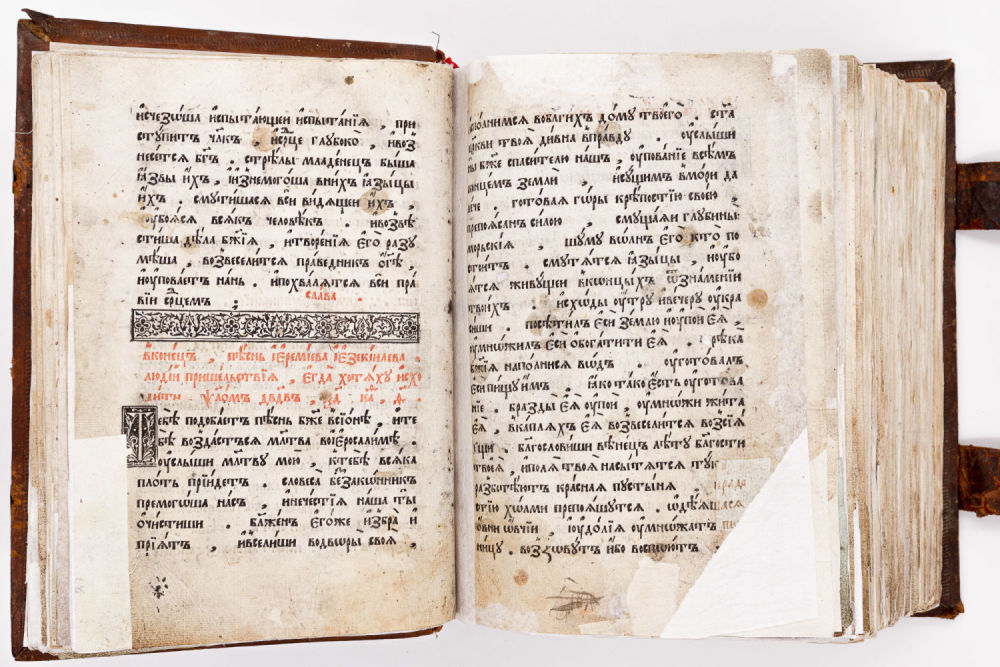 и҆счезо́ша и҆спыта́ющеи и҆спыта́нїѧ , при
стꙋ́питъ чл҃къ , и҆се́рце глꙋбоко̀ , и҆воз
несе́тсѧ бг҃ъ . стрѣ́лы младе́нецъ бы́ша
ꙗ҆́звы и҆́хъ , и҆и҆знемого́ша внихъ ꙗ҆зы́цы
и҆́хъ . смꙋти́шасѧ всѝ ви́дѧщеи и҆́хъ ,
и҆ꙋбоѧ́сѧ всѧ́къ человѣ́къ . и҆возвѣ
сти́ша дѣ́ла бж҃їѧ , и҆творе́нїѧ є҆гѡ̀ разꙋ
мѣ́ша , возвесели́тсѧ пра́ведник
и҆ꙋпова́етъ нань . и҆похва́лѧтсѧ всѝ пра
вїи ср҃цемъ .
сла́ва
вконе́цъ , пѣ́снь і҆еремі́ева і҆є҆зекі́илева .
люді́й прише́льствїѧ , є҆гда̀ хотѧ́хꙋ и҆схо
ди́ти . ѱало́мъ дв҃дъ , ѯ҃д . ка҃ , ф҃ .
Тебѣ̀ подоба́етъ пѣ́снь бж҃е всїѡ́нѣ , и҆те
бѣ̀ возда́стсѧ мл҃тва во і҆ерⷭ҇али́мѣ .
ᲂу҆слы́ши мл҃твꙋ мою̀ , ктебѣ̀ всѧ́ка
пло́ть прїи́детъ . словеса̀ беззако́нникъ
премого́ша на́съ , и҆нече́стїѧ на́ша ты̀
ѡ҆чи́стиши . блаже́нъ є҆го́же и҆збра̀ и҆
прїѧ́тъ , и҆всели́ши водво́ры своѧ̀ ,
и҆спо́лнимсѧ вобл҃ги́хъ до́мꙋ твоегѡ̀ . ст҃а
цр҃кви твоѧ̀ ди́вна впра́вдꙋ . ᲂу҆слы́ши
ны̀ бж҃е спаси́телю на́шъ , ᲂу҆пова́нїе всѣ́мъ
конце́мъ землѝ , и҆сꙋ́щимъ вмо́ри да
ле́че . гото́ваѧ го́ры крѣ́постїю свое́ю ,
препоѧ́санъ си́лою , смꙋща́ѧи глꙋбины̀
морскі́ѧ , шꙋ́мꙋ во́лнъ є҆гѡ̀ кто̀ по
стои́тъ . смѧтꙋ́тсѧ ꙗ҆зы́цы , и҆ᲂу҆бо
ѧ́тсѧ живꙋ́щеи вконцы́хъ ѿзна́менїи
твои́хъ . и҆схо́ды ᲂу҆́трꙋ и҆ве́черꙋ ᲂу҆кра
си́ши . посѣти́лъ є҆сѝ зе́млю и҆ᲂу҆поѝ ю҆̀ ,
ᲂу҆мно́жилъ є҆сѝ ѡ҆богати́ти ю҆̀ . рѣка̀
бж҃їѧ напо́лнисѧ во́дъ . ᲂу҆гото́валъ
є҆сѝ пи́щꙋ и҆̀мъ , ꙗ҆́ко та́ко є҆́сть ᲂу҆гото́ва
нїе . бразды̀ є҆ѧ̀ ᲂу҆по́и , ᲂу҆мно́жи жи́та
є҆ѧ̀ , вка́плѧхъ є҆ѧ̀ возвесели́тсѧ возсїѧ́
ющи . благослови́ши вѣне́цъ лѣ́тꙋ бл҃гости
твоеѧ̀ , и҆полѧ̀ твоѧ̀ насы́тѧтсѧ тꙋ́к
разботѣ́ютъ кра́снаѧ пꙋсты́нѧ
стїю хо́лми препоѧ́шꙋтсѧ . ѡ҆дѣ́ѧшасѧ
ѻ҆вни ѻ҆́вчїи , и҆ᲂу҆до́лїѧ ᲂу҆мно́жатъ п
ни́цꙋ . воззовꙋ́тъ и҆́бо воспою́тъ .